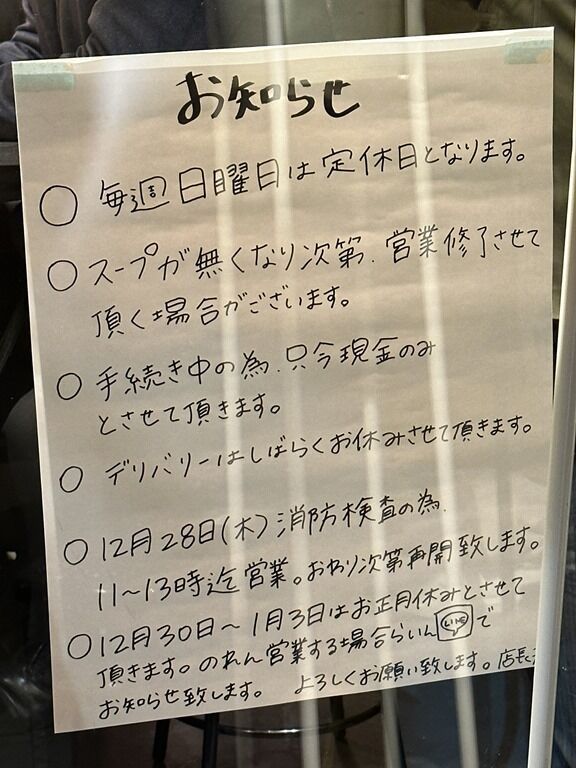 お知らせ
○ 毎週日曜日は定休日となります。
○ スープが無くなり次第、営業修了させて
頂く場合がございます。
○ 手続き中の為、只今現金のみ
とさせて頂きます。
○ デリバリーはしばらくお休みさせて頂きます。
○ 12月28日(木)消防検査の為、
11〜13時迄営業。おわり次第再開致します。
○ 12月30日〜1月3日はお正月休みとさせて
頂きます。のれん営業する場合らいん LINE で
お知らせ致します。 よろしくお願い致します。店長